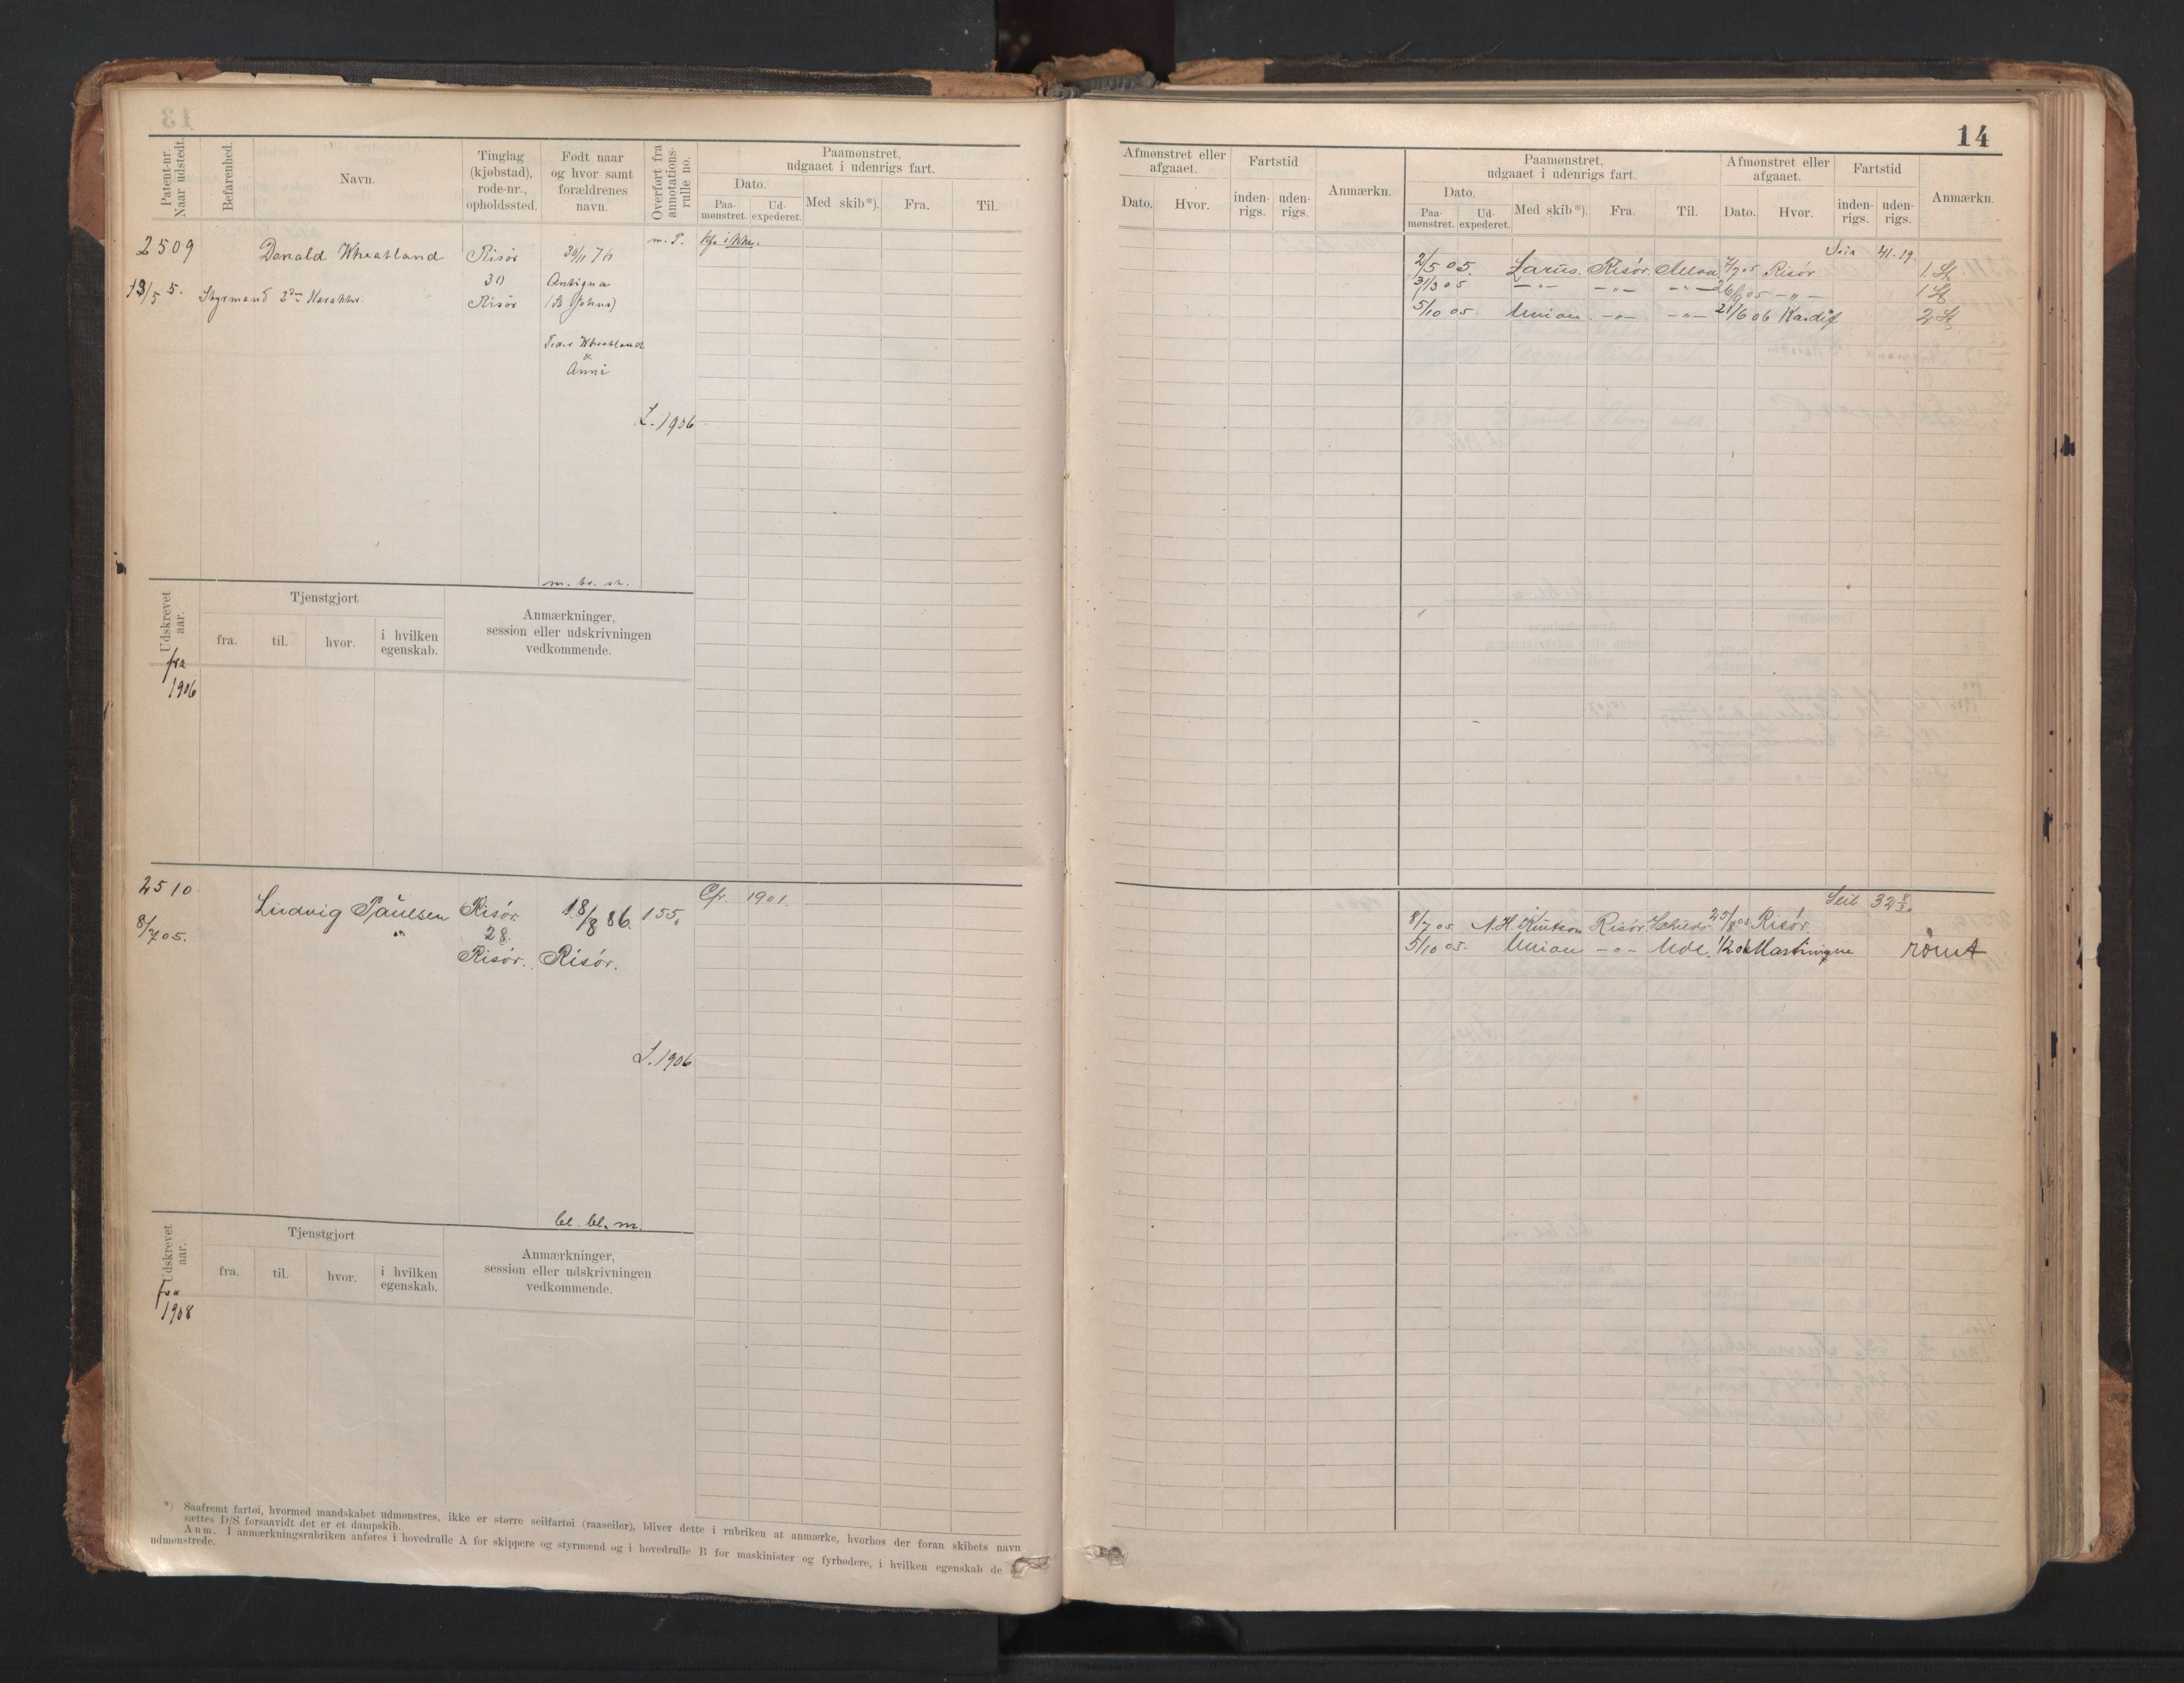 14
Patent-nr.
Naar udstedt.
Befarenhed.
Navn.
Tinglag
(kjøbstad),
rode-nr.,
opholdssted.
Født naar
og hvor samt
forældrenes
navn.
Overført fra
annotations-
rulle no.
Paamønstret,
udgaaet i udenrigs fart.
Dato.
Paa-
mønstret.
Ud-
expederet.
Med skib*).
Fra.
Til.
2509
13/5 5.
Donald Wheatland
Styrmand 2den
Risør
30
Risør
30/11 76
Antigua
(St Johns)
Wheatland
Anni
m. P.
L. 1906
m. br. st.
Udskrevet
aar.
Tjenstgjort
fra.
til.
hvor.
i hvilken
egenskab.
Anmærkninger,
session eller udskrivningen
vedkommende.
fra
1906
2510.
8/7 05.
Ludvig Paulsen
Risør
28.
Risør.
18/8 86.
Risør.
155.
Cfr. 1901.
L. 1906
bl. bl. m.
Udskrevet
aar.
Tjenstgjort
fra.
til.
hvor.
i hvilken
egenskab.
Anmærkninger,
session eller udskrivningen
vedkommende.
fra
1908
*) Saafremt fartøi, hvormed mandskabet udmønstres, ikke er større seilfartøi (raaseiler), bliver dette i rubriken at anmærke, hvorhos der foran skibets navn
sættes D/S forsaavidt det er et dampskib.
Anm. I anmærkningsrubriken anføres i hovedrulle A for skippere og styrmænd og i hovedrulle B for maskinister og fyrbødere, i hvilken egenskab de
udmønstrede.
Afmønstret eller
afgaaet.
Dato.
Hvor.
Fartstid
inden-
rigs.
uden-
rigs.
Anmærkn.
Paamønstret,
udgaaet i udenrigs fart.
Dato.
Paa-
mønstret.
Ud-
expederet.
Med skib*).
Fra.
Til.
Afmønstret eller
afgaaet.
Dato.
Hvor.
Fartstid
inden-
rigs.
uden-
rigs.
Anmærkn.
41.19
2/5 05. Larus. Risør. 7/7 05 Risør 1 St
31/3 05 –"– –"– –"– 26/9 05 –"– 1 St
5/10 05. Union –"– –"– 21/6 06 Kardif 2 St
Seil 32
8/7 05 N. H. Knutson Risør 25/8 05 Risør.
5/10 05. Union –"– Ude. 1/2 06 Martinique rømt